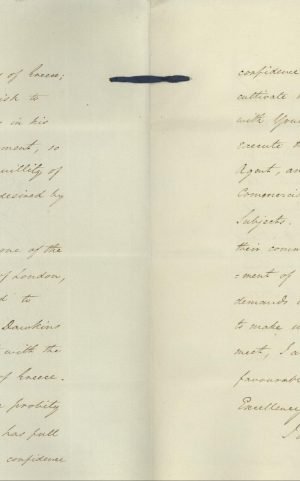 of Greece;
ish to
in his
ment, so
quillity of
desired by
one of the
of London,
d to
Dawkins
with the
of Greece.
probity
has full
confidence
confidence
cultivate
with You
execute
Agent, an
Commerci
Subjects.
their comm
=ment of
demands
to make
meet, I a
favourab
Excellency